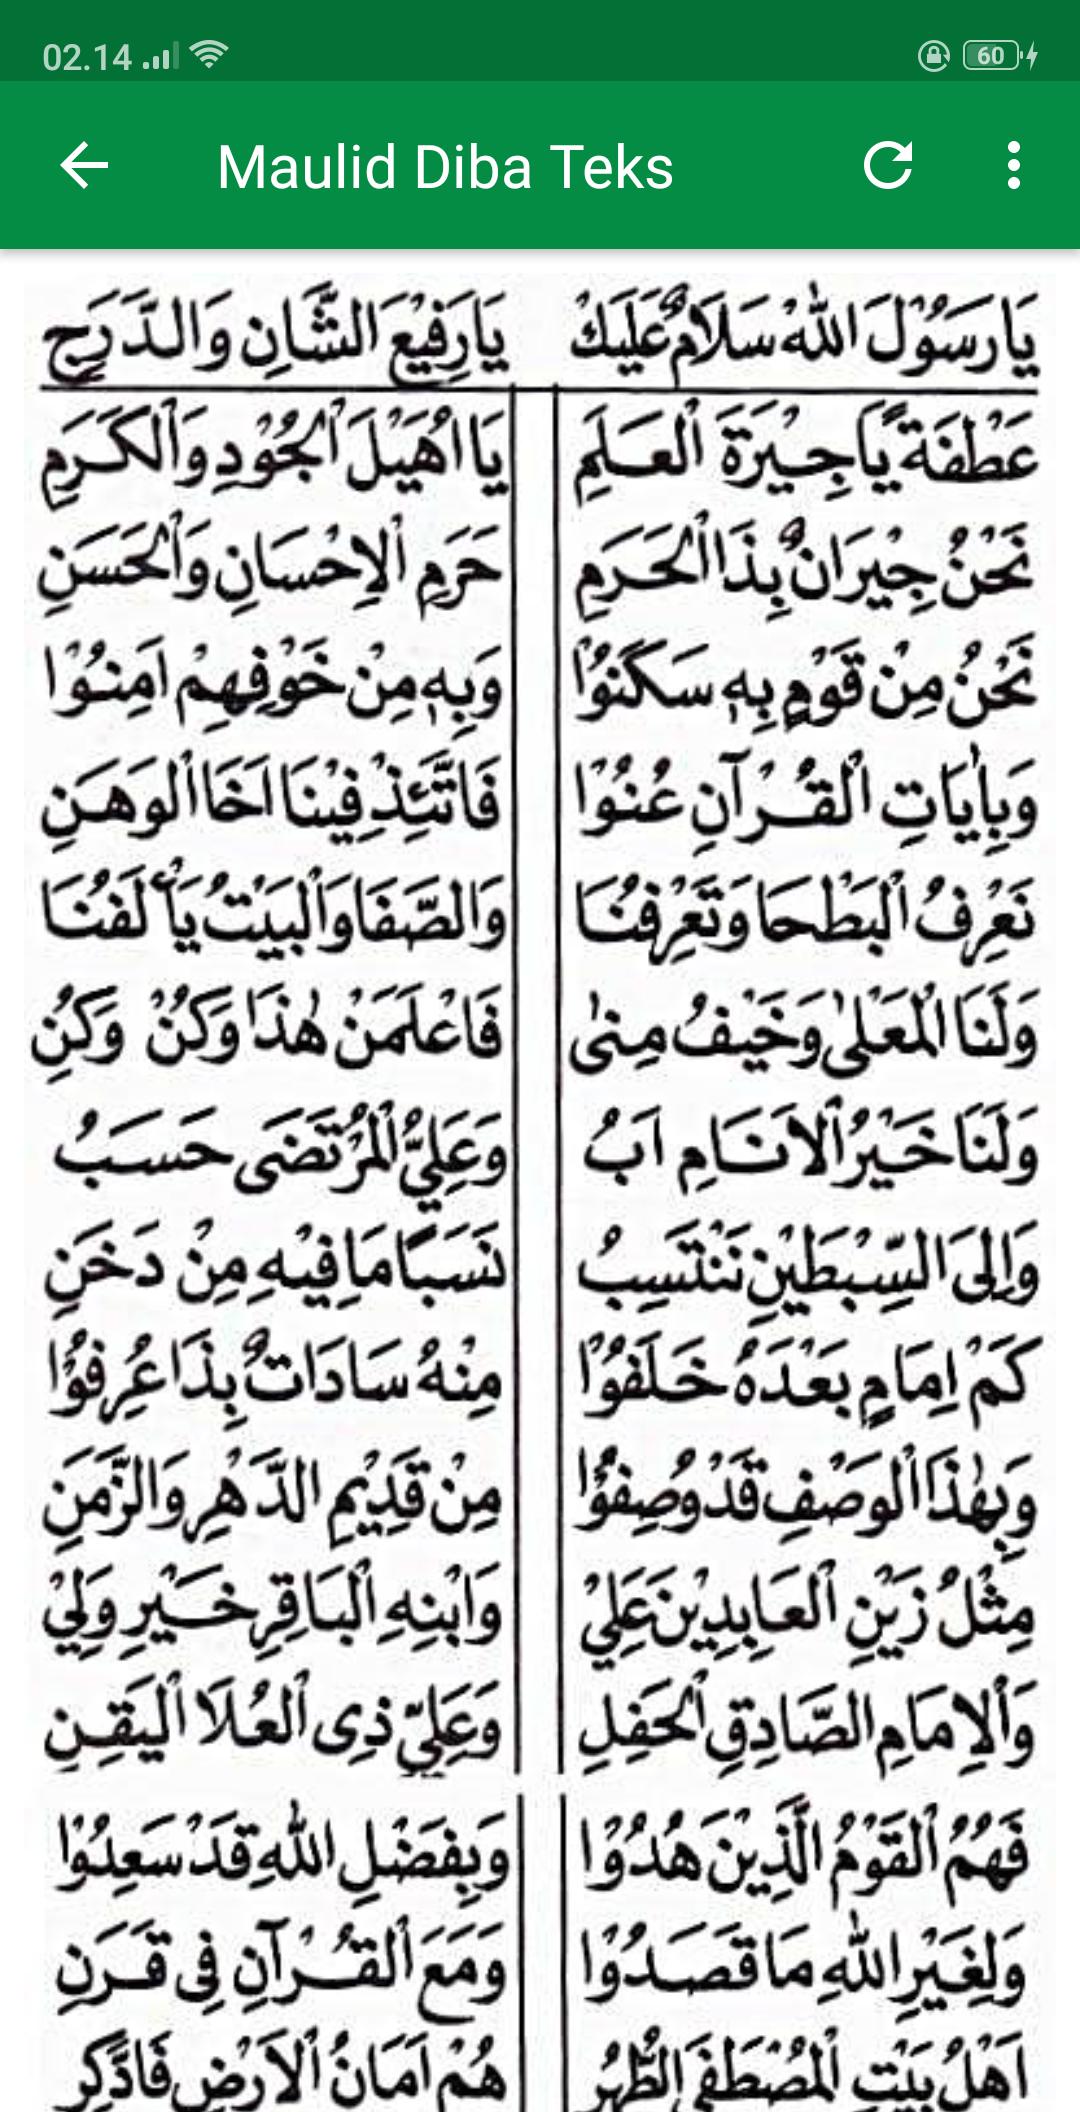 02.14
60
Maulid Diba Teks
يَارَسُوْلَ اللهْ سَلَامٌ عَلَيْكْ يَارَفِيْعَ الشَّانِ وَالدَّرَجِ
عَطْفَةً يَاجِيْرَةَ الْعَلَمِ يَااُهَيْلَ الْجُوْدِ وَالْكَرَمِ
نَحْنُ جِيْرَانٌ بِذَاالْحَرَمِ حَرَمِ الْاِحْسَانِ وَالْحَسَنِ
نَحْنُ مِنْ قَوْمٍ بِهٖ سَكَنُوْا وَبِهٖ مِنْ خَوْفِهِمْ اَمِنُوْا
وَبِاٰيَاتِ الْقُرْآنِ عُنُوْا فَاتَّئِذْ فِيْنَا اَخَاالْوَهَنِ
نَعْرِفُ الْبَطْحَا وَتَعْرِفُنَا وَالصَّفَا وَالْبَيْتُ يَأْلَفُنَا
وَلَنَا الْمَعْلٰى وَخَيْفُ مِنٰى فَاعْلَمَنْ هٰذَا وَكُنْ وَكُنِ
وَلَنَا خَيْرُ الْاَنَامِ اَبُ وَعَلِيُّ الْمُرْتَضَى حَسَبُ
وَاِلَى السِّبْطَيْنِ نَنْتَسِبُ نَسَبًا مَافِيْهِ مِنْ دَخَنِ
كَمْ اِمَامٍ بَعْدَهُ خَلَفُوْا مِنْهُ سَادَاتٌ بِذَا عُرِفُوْا
وَبِهٰذَا الْوَصْفِ قَدْ وُصِفُوْا مِنْ قَدِيْمِ الدَّهْرِ وَالزَّمَنِ
مِثْلُ زَيْنِ الْعَابِدِيْنَ عَلِيْ وَابْنِهِ الْبَاقِرِ خَيْرِ وَلِيْ
وَالْاِمَامِ الصَّادِقِ الْحَفِلِ وَعَلِيٍّ ذِى الْعُلَا الْيَقِنِ
فَهُمُ الْقَوْمُ الَّذِيْنَ هُدُوْا وَبِفَضْلِ اللهِ قَدْ سَعِدُوْا
وَلِغَيْرِ اللهِ مَا قَصَدُوْا وَمَعَ الْقُرْآنِ فِى قَرَنِ
اَهْلُ بَيْتِ الْمُصْطَفَى الطُّهُرِ هُمْ اَمَانُ الْاَرْضِ فَادَّكِرِ